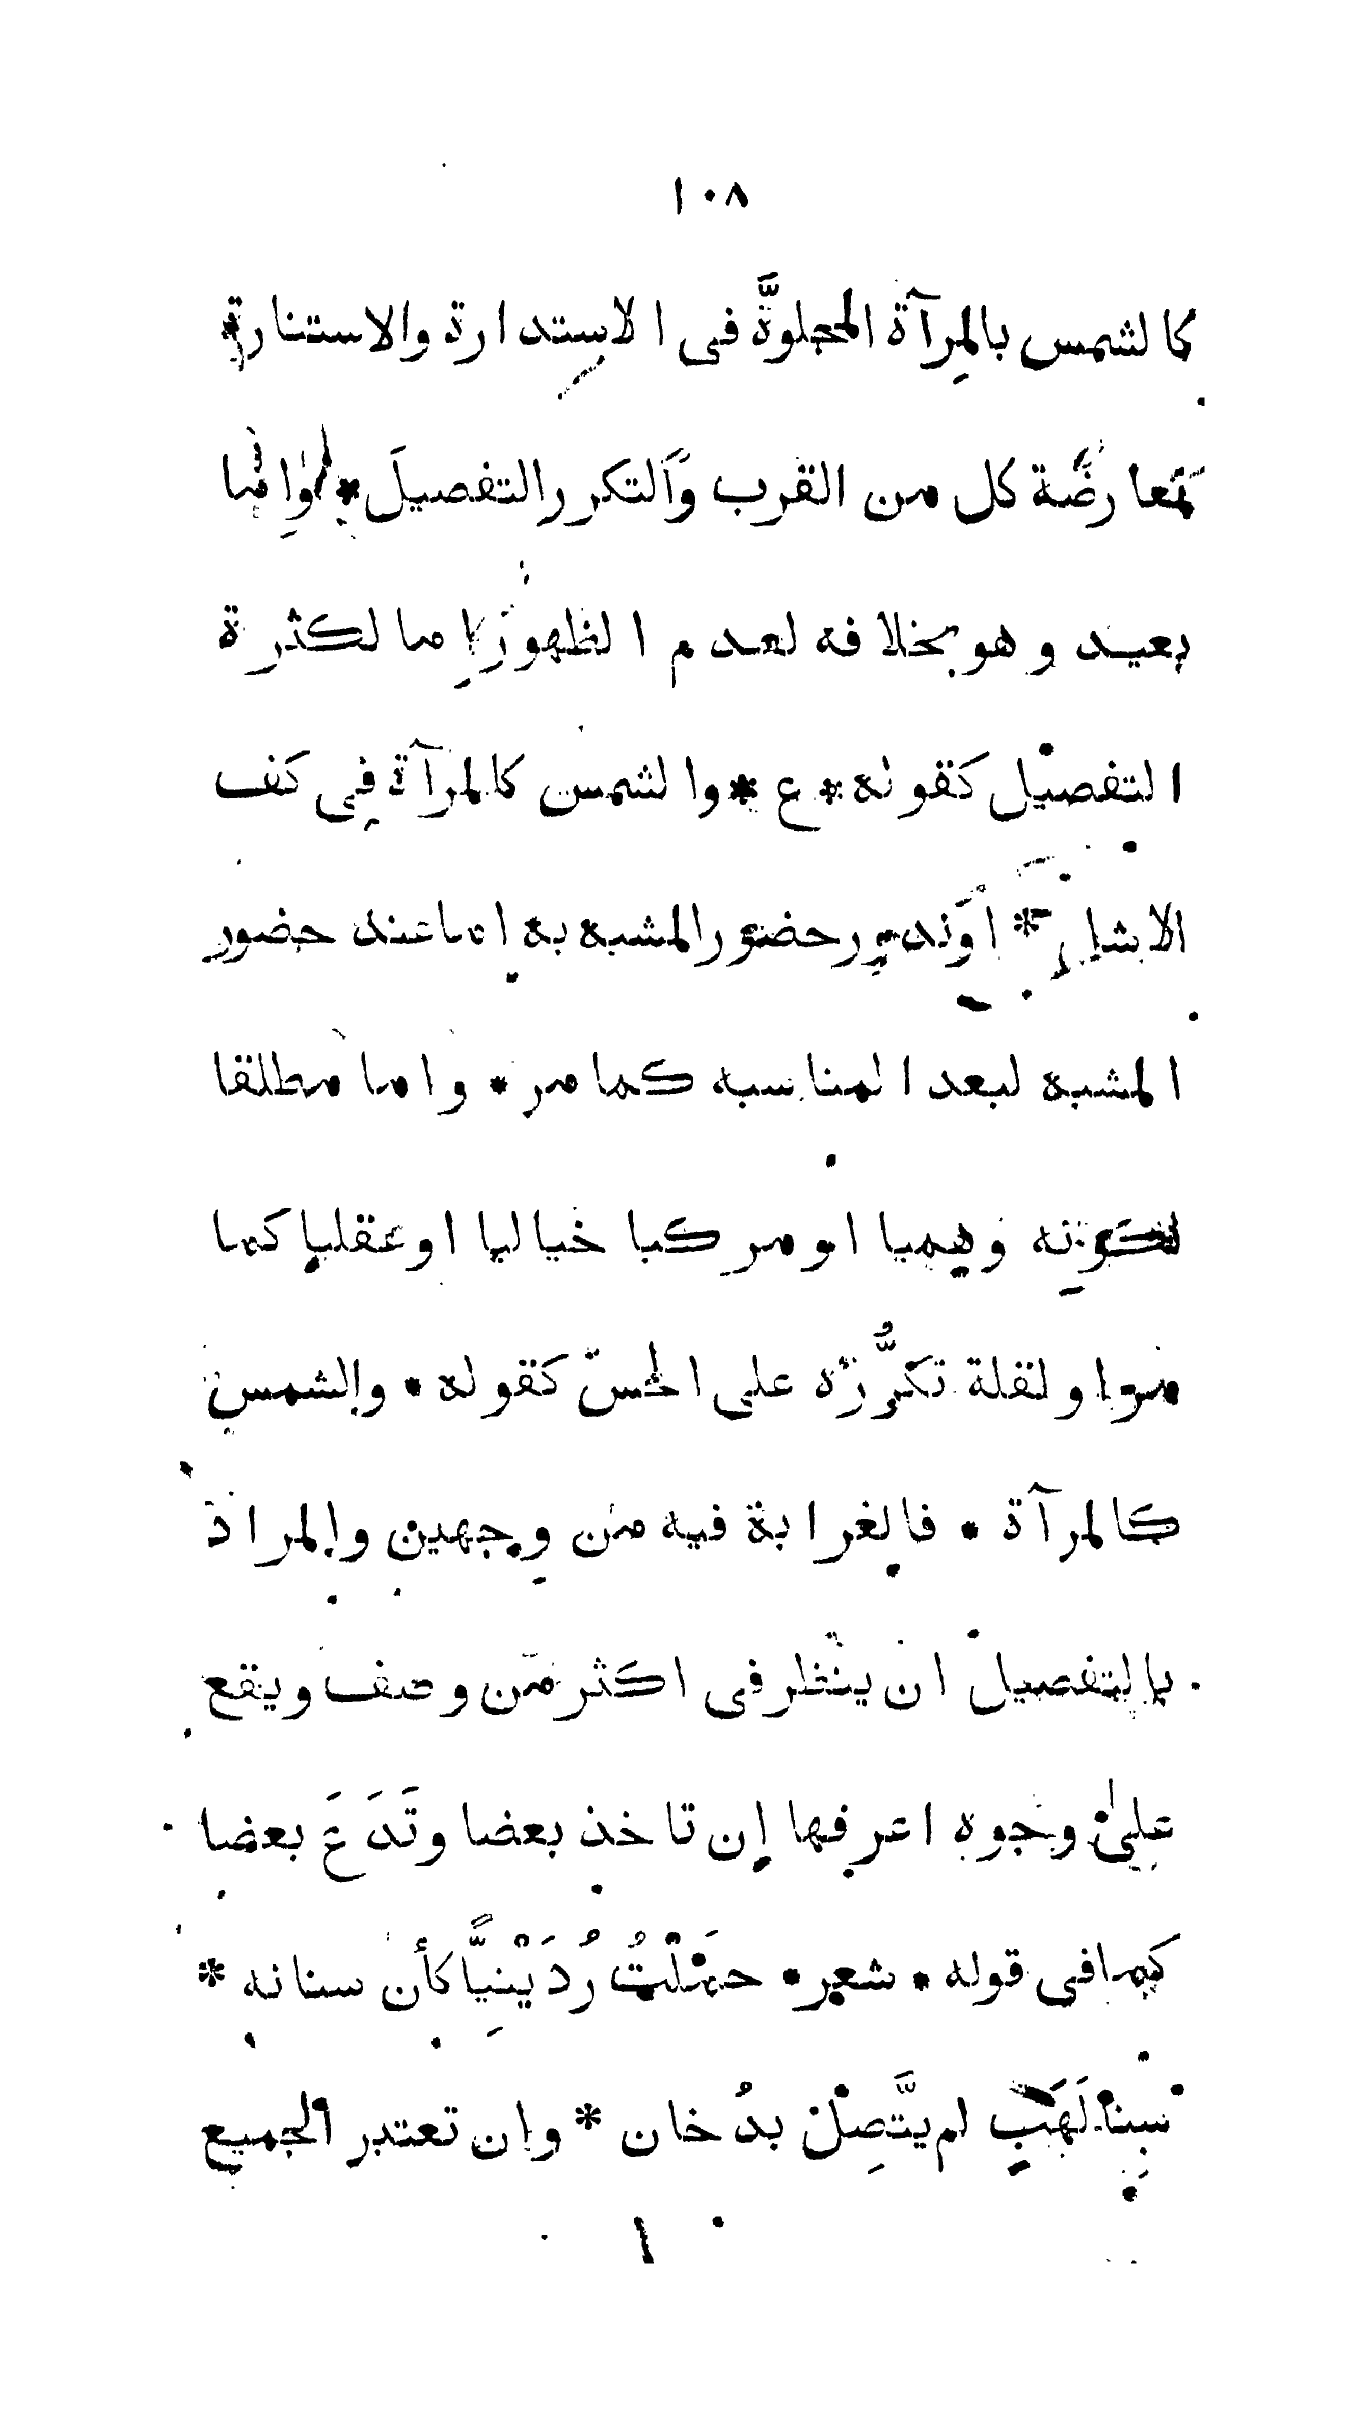 ١٠٨
كالشمس بالمِرآة المجلوَّة في الاستدارة والاستنارة
لمعارضة كل من القرب والتكرر التفصيلَ * واما
بعيد وهو بخلافه لعدم الظهور اما لكثرة
التفصيل كقوله * ع * والشمس كالمرآة في كف
الاشل * اوندور حضور المشبه به اما عند حضور
المشبه لبعد المناسبه كمامر * واما مطلقا
لكونه وهميا اومركبا خياليا اوعقليا كما
مر اولقلة تكرُّره على الحسّ كقوله * والشمس
كالمرآة * فالغرابة فيه من وجهين والمراد
بالتفصيل ان ينظر في اكثر من وصف ويقع
على وجوه اعرفها ان تاخذ بعضا وتَدَعَ بعضا
كما في قوله * شعر * حمَلْتُ رُدَيْنِيًّا كأن سنانه *
سنا لَهَبٍ لم يتَّصِلْ بدُخان * وان تعتبر الجميع